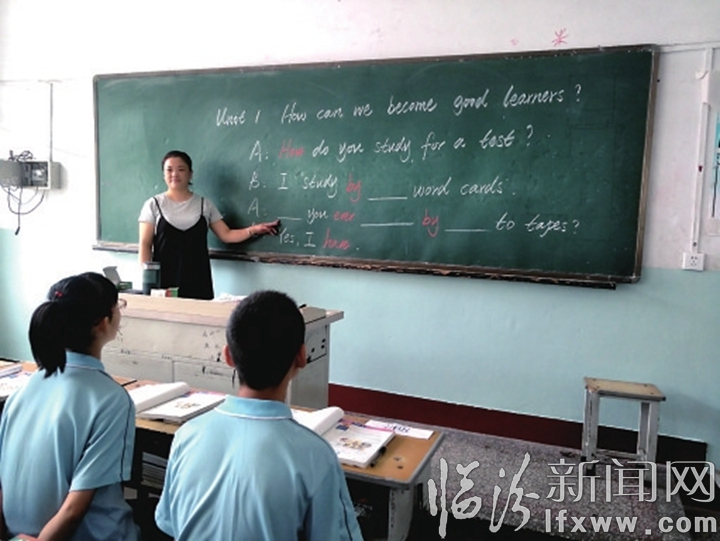 Unit 1 How can we become good learners?
A: How do you study for a test?
B: I study by ____ word cards.
A: ____ you ever ____ by ____ to tapes?
Yes, I have.
临汾新闻网
lfxww.com